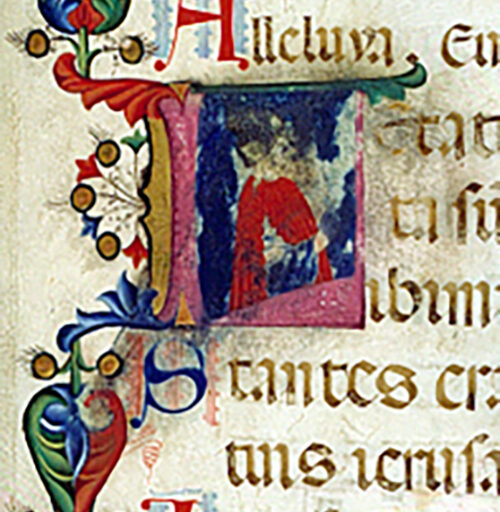 Alleluya. Eu
Letat
ti su
ibim
Stantes era
tuis ierusa